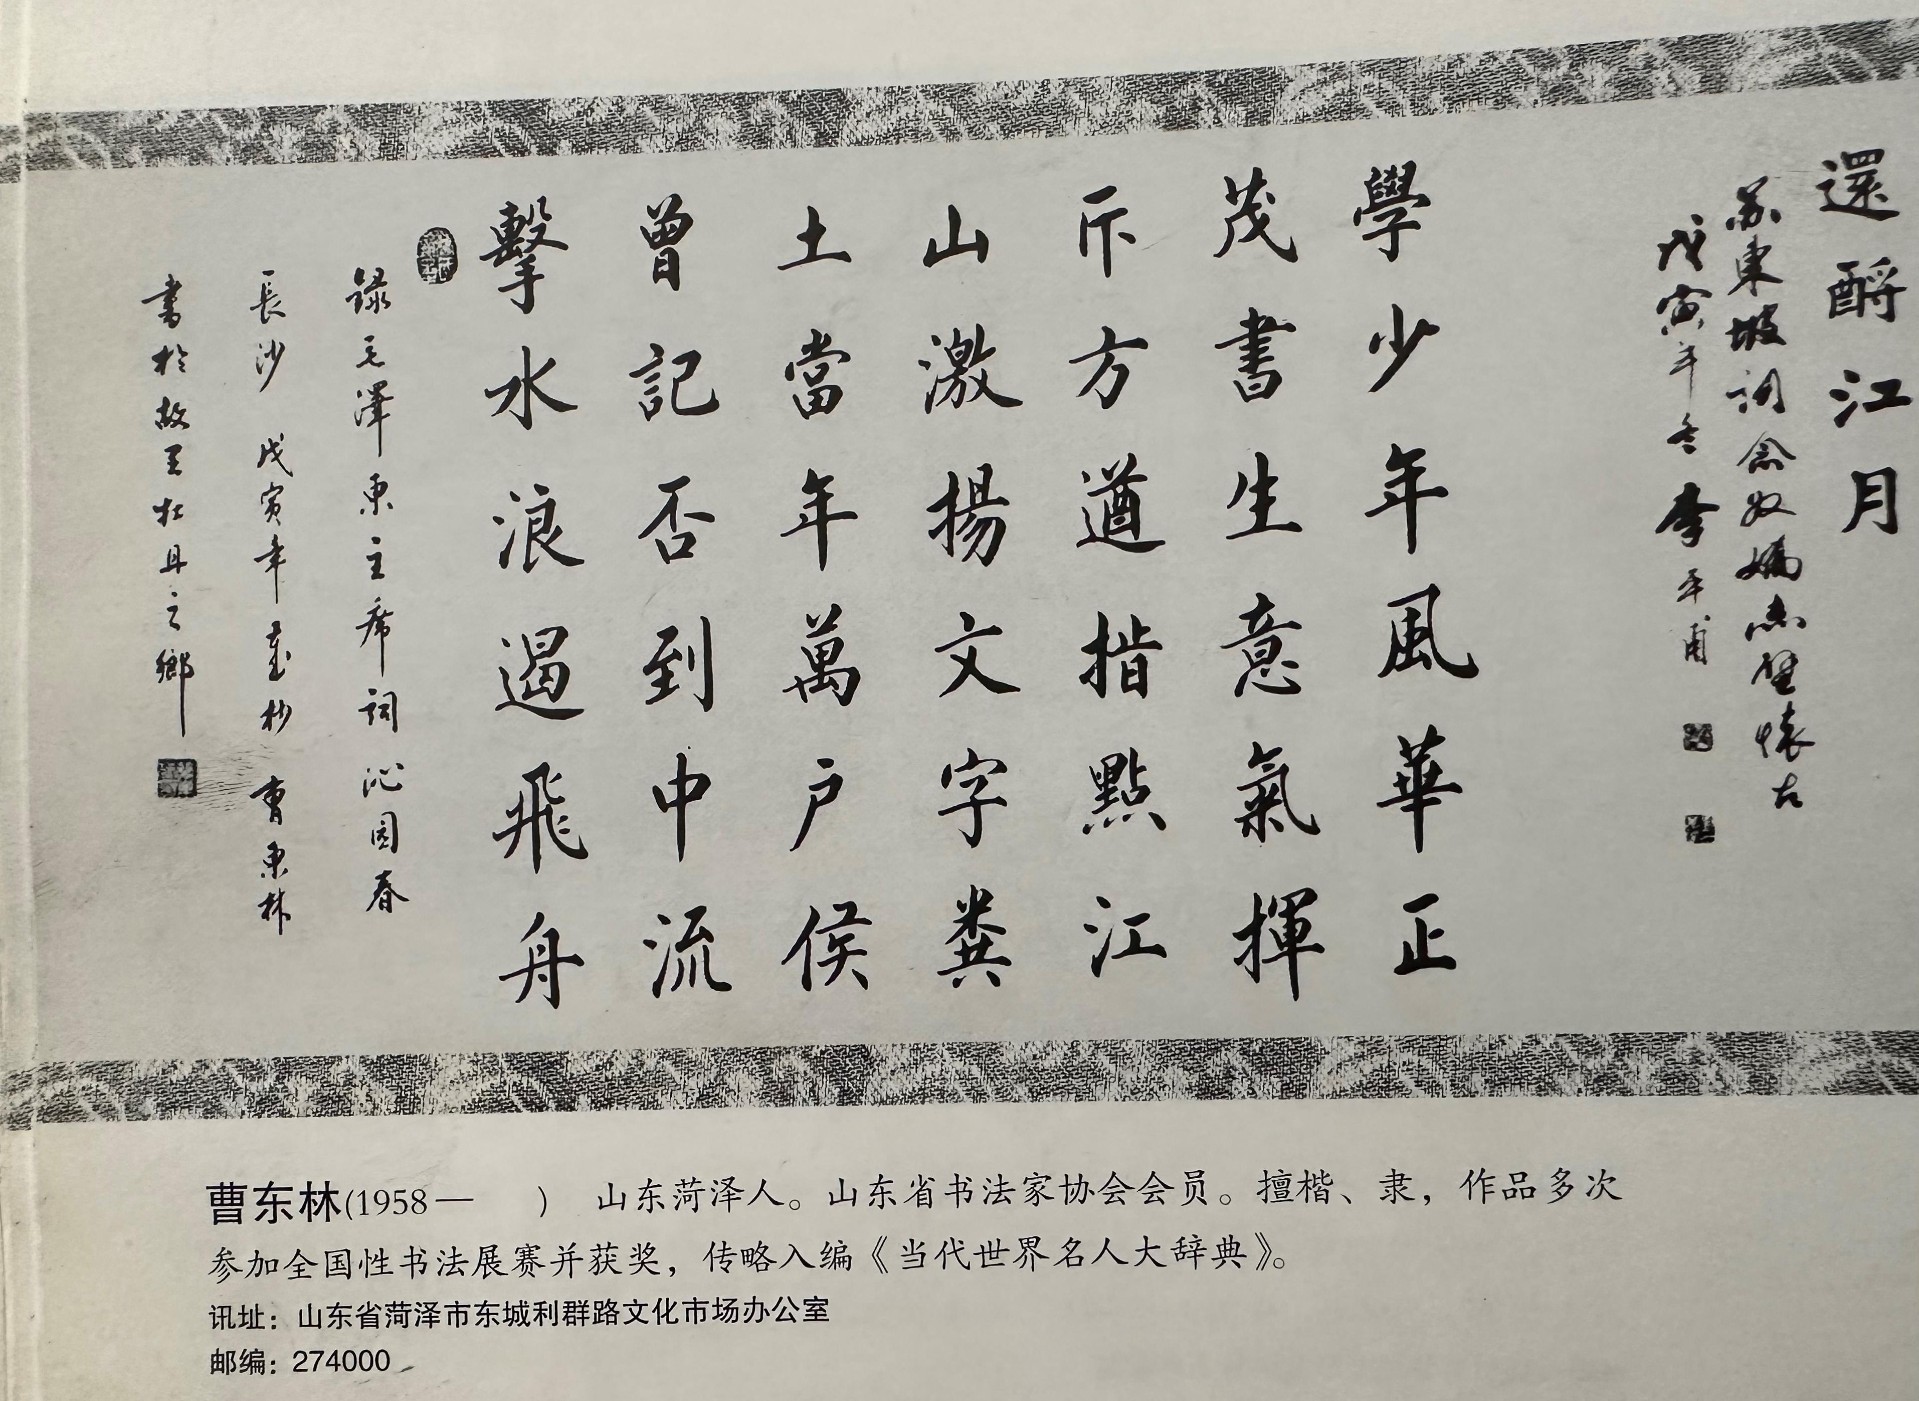 還酹江月
苏東坡詞念奴嬌赤壁懐古
戊寅年冬李平甫
學少年風華正
茂書生意氣揮
斥方遒指點江
山激揚文字糞
土當年萬户侯
曾記否到中流
擊水浪遏飛舟
録毛澤東主席詞沁园春
長沙 戊寅年春杪 曹東林
書於故里牡丹之鄉
曹东林(1958— ) 山东菏泽人。山东省书法家协会会员。擅楷、隶，作品多次
参加全国性书法展赛并获奖，传略入编《当代世界名人大辞典》。
讯址：山东省菏泽市东城利群路文化市场办公室
邮编：274000